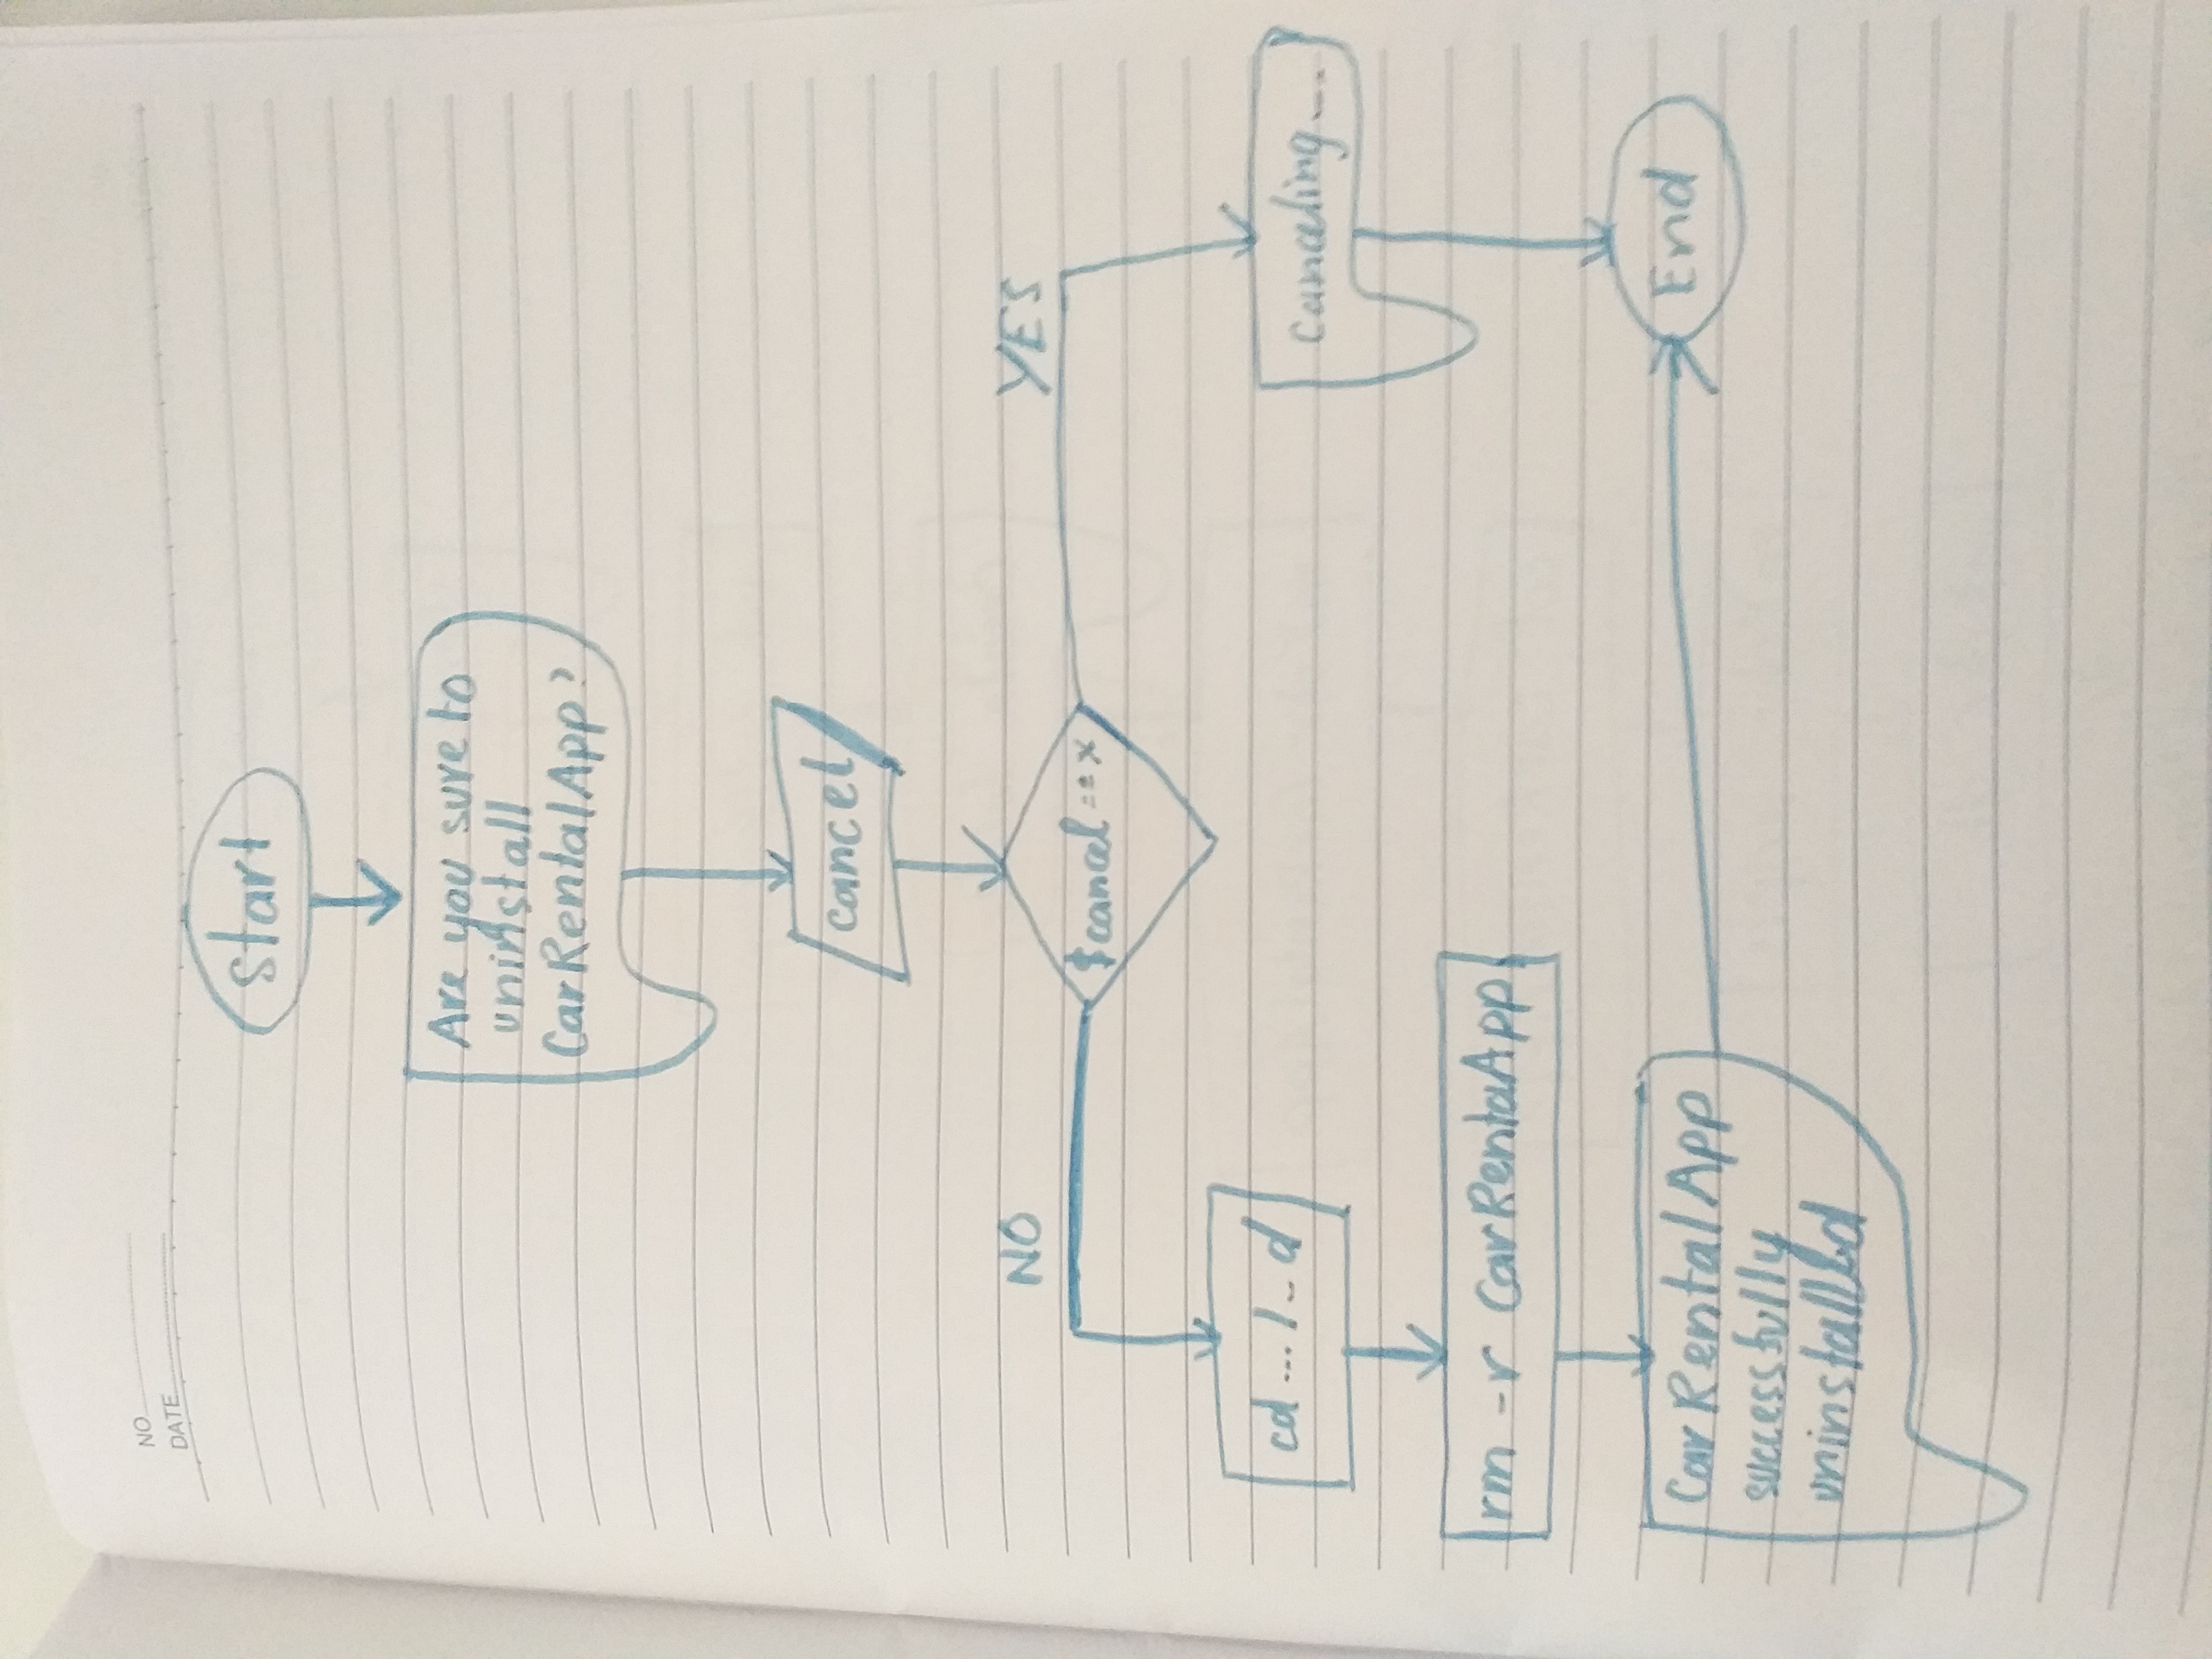 NO
DATE
Start
Are you sure to
uninstall
CarRentalApp?
cancel
NO
YES
$cancel == x
cd
canceling...
rm -r CarRentaApp
CarRentalApp
successfully
uninstalled
End